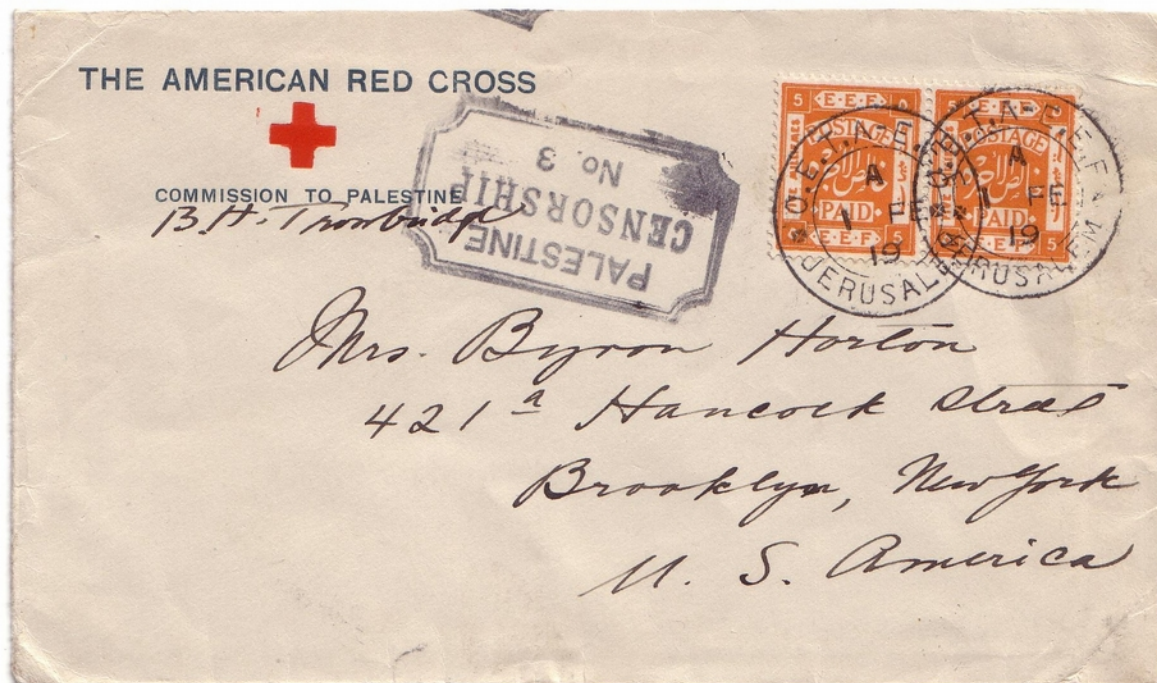 THE AMERICAN RED CROSS
COMMISSION TO PALESTINE
B. H. Trowbridge
PALESTINE
CENSORSHIP
No. 3
5 E.E.F 5
POSTAGE
PAID
5 E.E.F 5
5 E.E.F
POSTAGE
PAID
E.E.F 5
O.E.T.A-E.E.F.
A
1 FE
19
JERUSALEM
O.E.T.A-E.E.F.
A
1 FE
19
JERUSALEM
Mrs. Byron Horton
421a Hancock Street
Brooklyn, New York
U. S. America